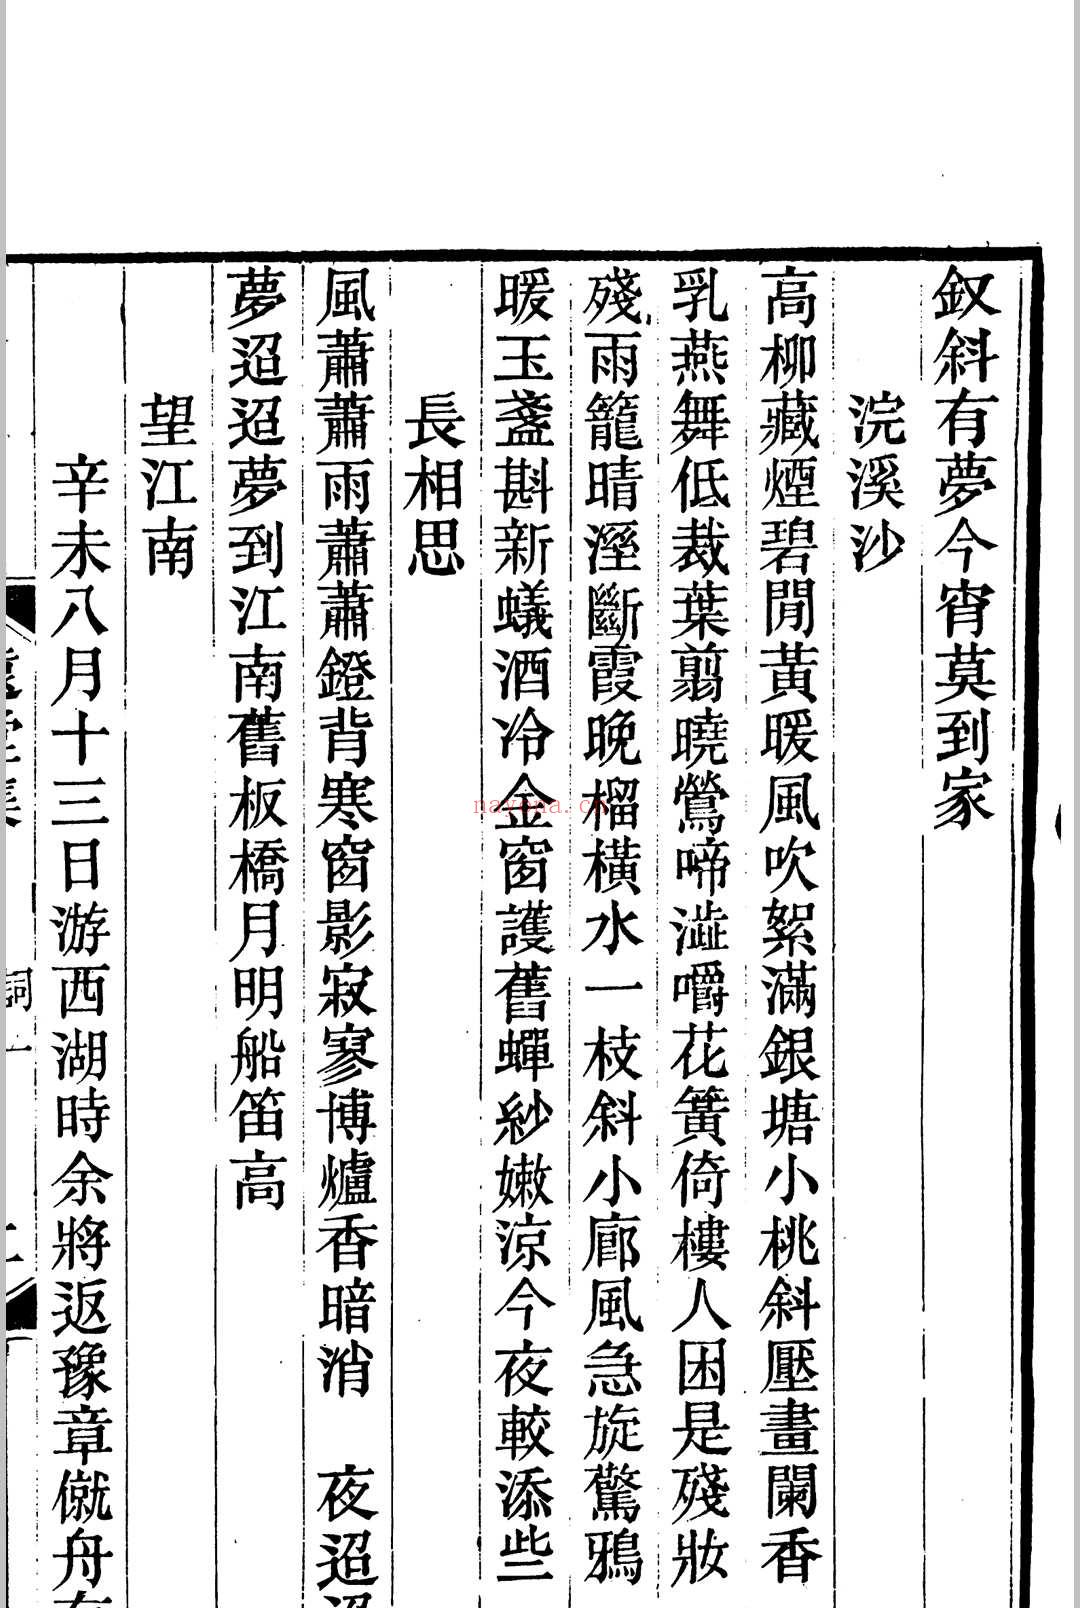 釵斜有夢今宵莫到家
浣溪沙
高柳藏煙碧閒黃暖風吹絮滿銀塘小桃斜壓畫闌香
乳燕舞低裁葉翦曉鶯啼澁嚼花簧倚樓人困是殘妝
殘雨籠晴溼斷霞晚榴橫水一枝斜小廊風急旋驚鴉
暖玉盞斟新蟻酒冷金窗護舊蟬紗嫩涼今夜較添些
長相思
風蕭蕭雨蕭蕭鐙背寒窗影寂寥博爐香暗消　夜迢
夢迢迢夢到江南舊板橋月明船笛高
望江南
辛未八月十三日游西湖時余將返豫章僦舟
詞一
nayona.cn